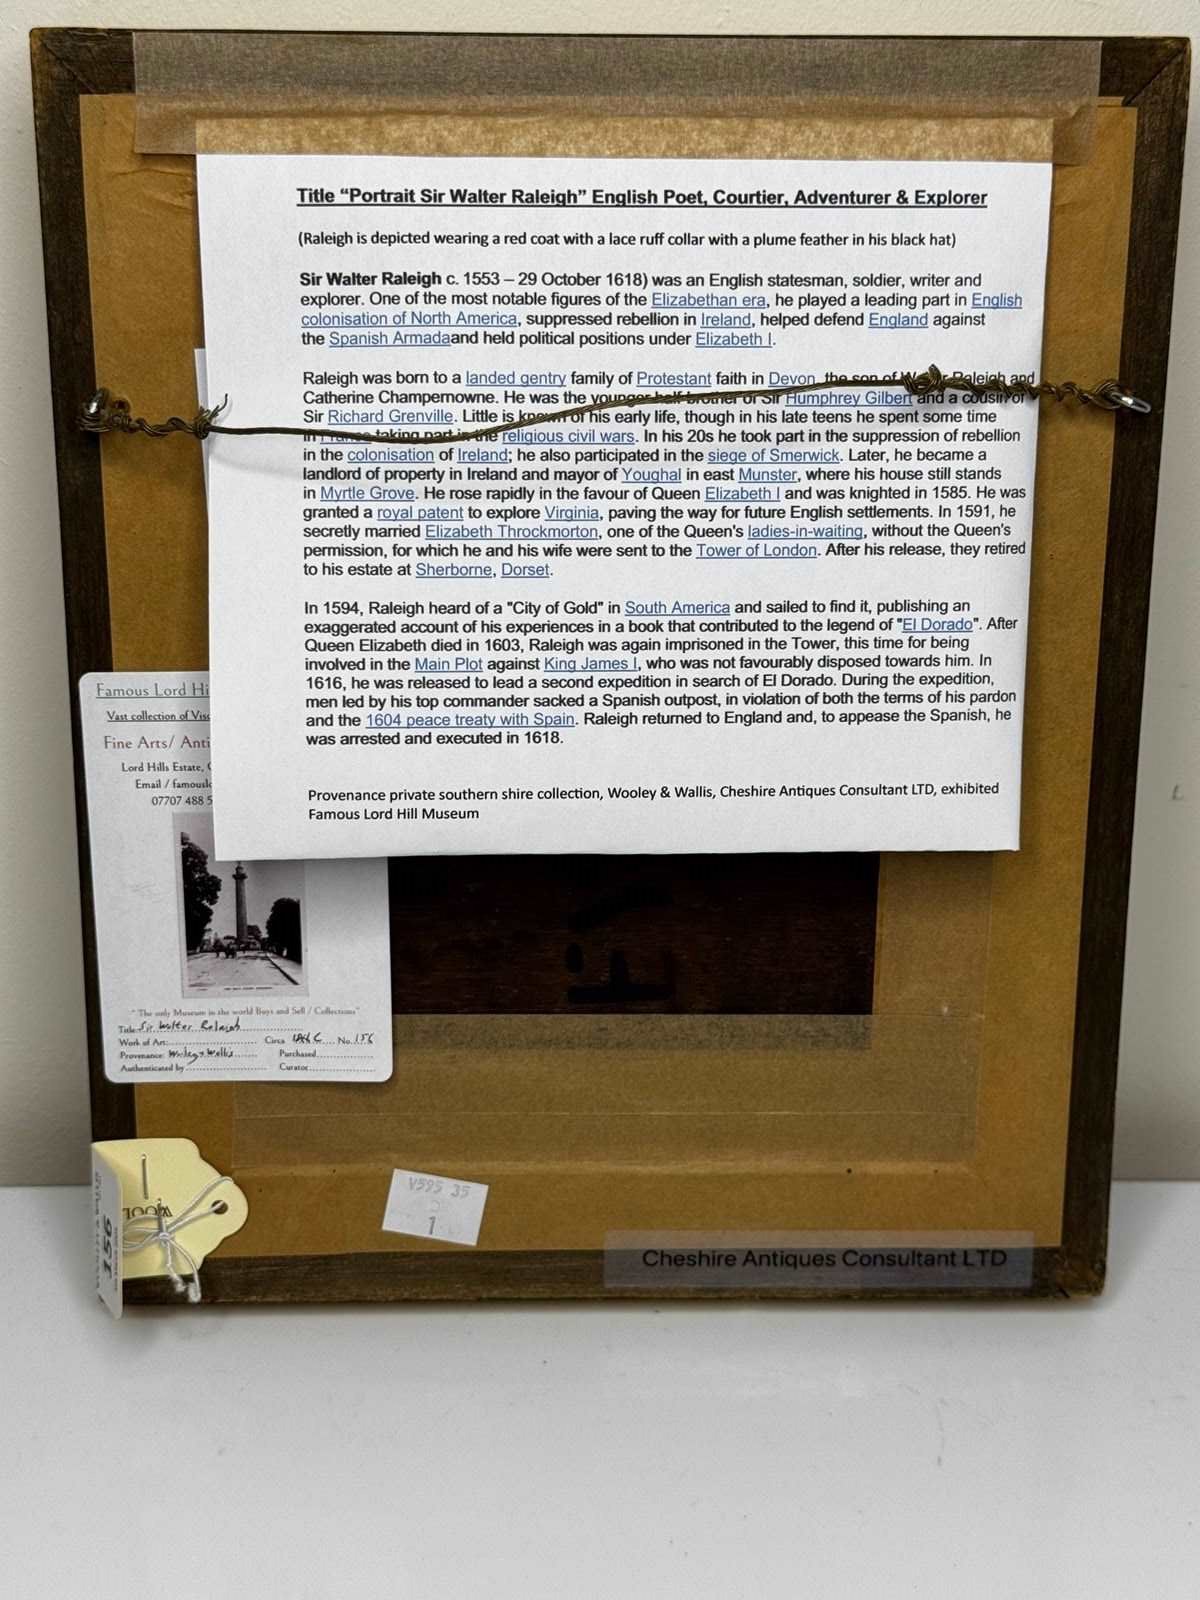 Title “Portrait Sir Walter Raleigh” English Poet, Courtier, Adventurer & Explorer
(Raleigh is depicted wearing a red coat with a lace ruff collar with a plume feather in his black hat)
Sir Walter Raleigh c. 1553 – 29 October 1618) was an English statesman, soldier, writer and
explorer. One of the most notable figures of the Elizabethan era, he played a leading part in English
colonisation of North America, suppressed rebellion in Ireland, helped defend England against
the Spanish Armadaand held political positions under Elizabeth I.
Raleigh was born to a landed gentry family of Protestant faith in Devon, the son of Walter Raleigh and
Catherine Champernowne. He was the younger half-brother of Sir Humphrey Gilbert and a cousin of
Sir Richard Grenville. Little is known of his early life, though in his late teens he spent some time
in France taking part in the religious civil wars. In his 20s he took part in the suppression of rebellion
in the colonisation of Ireland; he also participated in the siege of Smerwick. Later, he became a
landlord of property in Ireland and mayor of Youghal in east Munster, where his house still stands
in Myrtle Grove. He rose rapidly in the favour of Queen Elizabeth I and was knighted in 1585. He was
granted a royal patent to explore Virginia, paving the way for future English settlements. In 1591, he
secretly married Elizabeth Throckmorton, one of the Queen's ladies-in-waiting, without the Queen's
permission, for which he and his wife were sent to the Tower of London. After his release, they retired
to his estate at Sherborne, Dorset.
In 1594, Raleigh heard of a "City of Gold" in South America and sailed to find it, publishing an
exaggerated account of his experiences in a book that contributed to the legend of "El Dorado". After
Queen Elizabeth died in 1603, Raleigh was again imprisoned in the Tower, this time for being
involved in the Main Plot against King James I, who was not favourably disposed towards him. In
1616, he was released to lead a second expedition in search of El Dorado. During the expedition,
men led by his top commander sacked a Spanish outpost, in violation of both the terms of his pardon
and the 1604 peace treaty with Spain. Raleigh returned to England and, to appease the Spanish, he
was arrested and executed in 1618.
Provenance private southern shire collection, Wooley & Wallis, Cheshire Antiques Consultant LTD, exhibited
Famous Lord Hill Museum
Famous Lord Hi
Vast collection of Visc
Fine Arts/ Anti
Lord Hills Estate,
Email / famousl
07707 488 5
" The only Museum in the world Buys and Sell / Collections"
Title: Sir Walter Raleigh
Work of Art: Circa 19th C No. 156
Provenance: Wooley & Wallis Purchased
Authenticated by Curator
WOOL
156
V595 35
1
Cheshire Antiques Consultant LTD